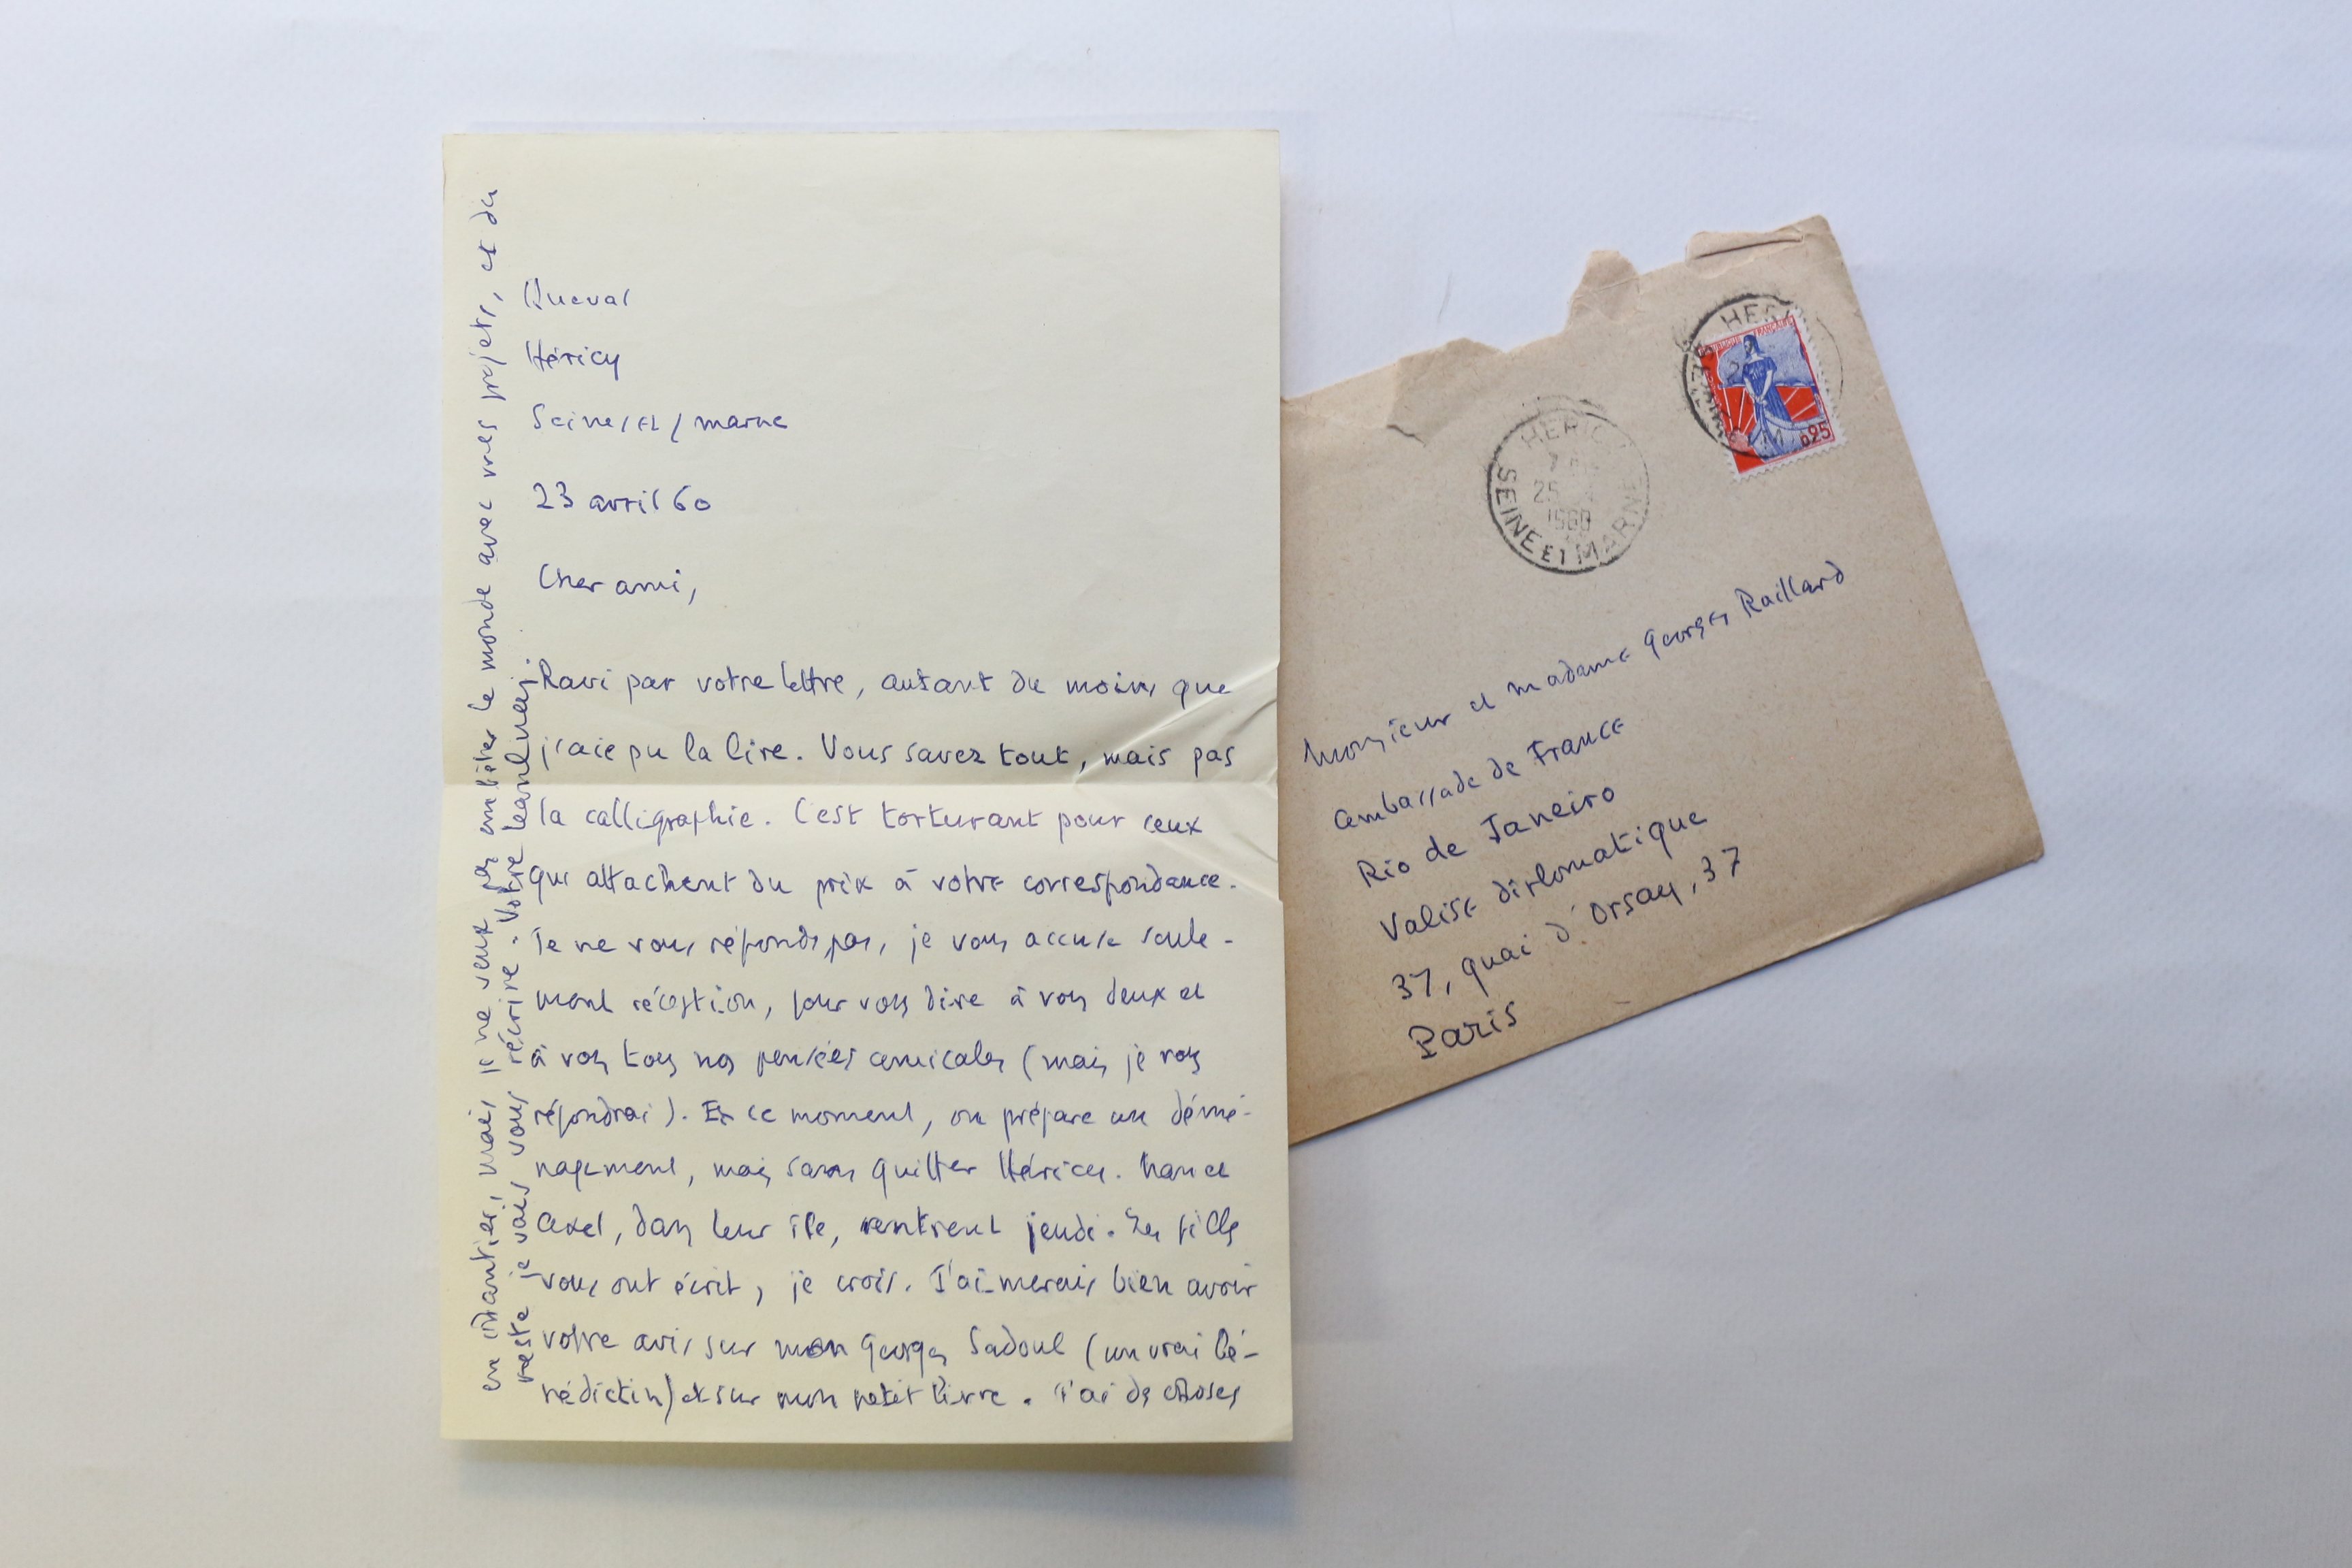 Queval
Héricy
Seine/et/marne
23 avril 60
Cher ami,
Ravi par votre lettre, autant du moins que
j'aie pu la lire. Vous savez tout, mais pas
la calligraphie. C'est torturant pour ceux
qui attachent du prix à votre correspondance.
Je ne vous réponds pas, je vous accuse seule-
ment réception, pour vous dire à vous deux et
à vous tous nos pensées amicales (mais je vous
répondrai). En ce moment, on prépare un démé-
nagement, mais sans quitter Héricy. et
Axel, dans leur île, rentrent jeudi. Les filles
vous ont écrit, je crois. J'aimerais bien avoir
votre avis sur mon Georges Sadoul (un vrai bé-
nédictin) et sur mon petit livre. J'ai des choses
en chantier, mais je ne veux pas embêter le monde avec mes projets, et du
reste je vais vous récrire. Votre Jean Queval.
HERICY
25
1960
SEINE ET MARNE
HERI
FRANÇAISE
0,25
Monsieur et madame Georges Raillard
Ambassade de France
Rio de Janeiro
Valise diplomatique
37, quai d'Orsay, 37
Paris